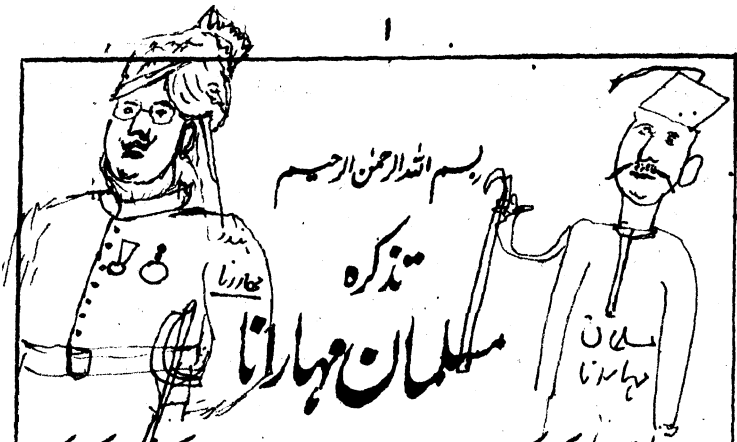 ۱
بسم اللہ الرحمٰن الرحیم
تذکرہ
مسلمان مہارانا
ہندو
مہارانا
مسلمان
مہارانا